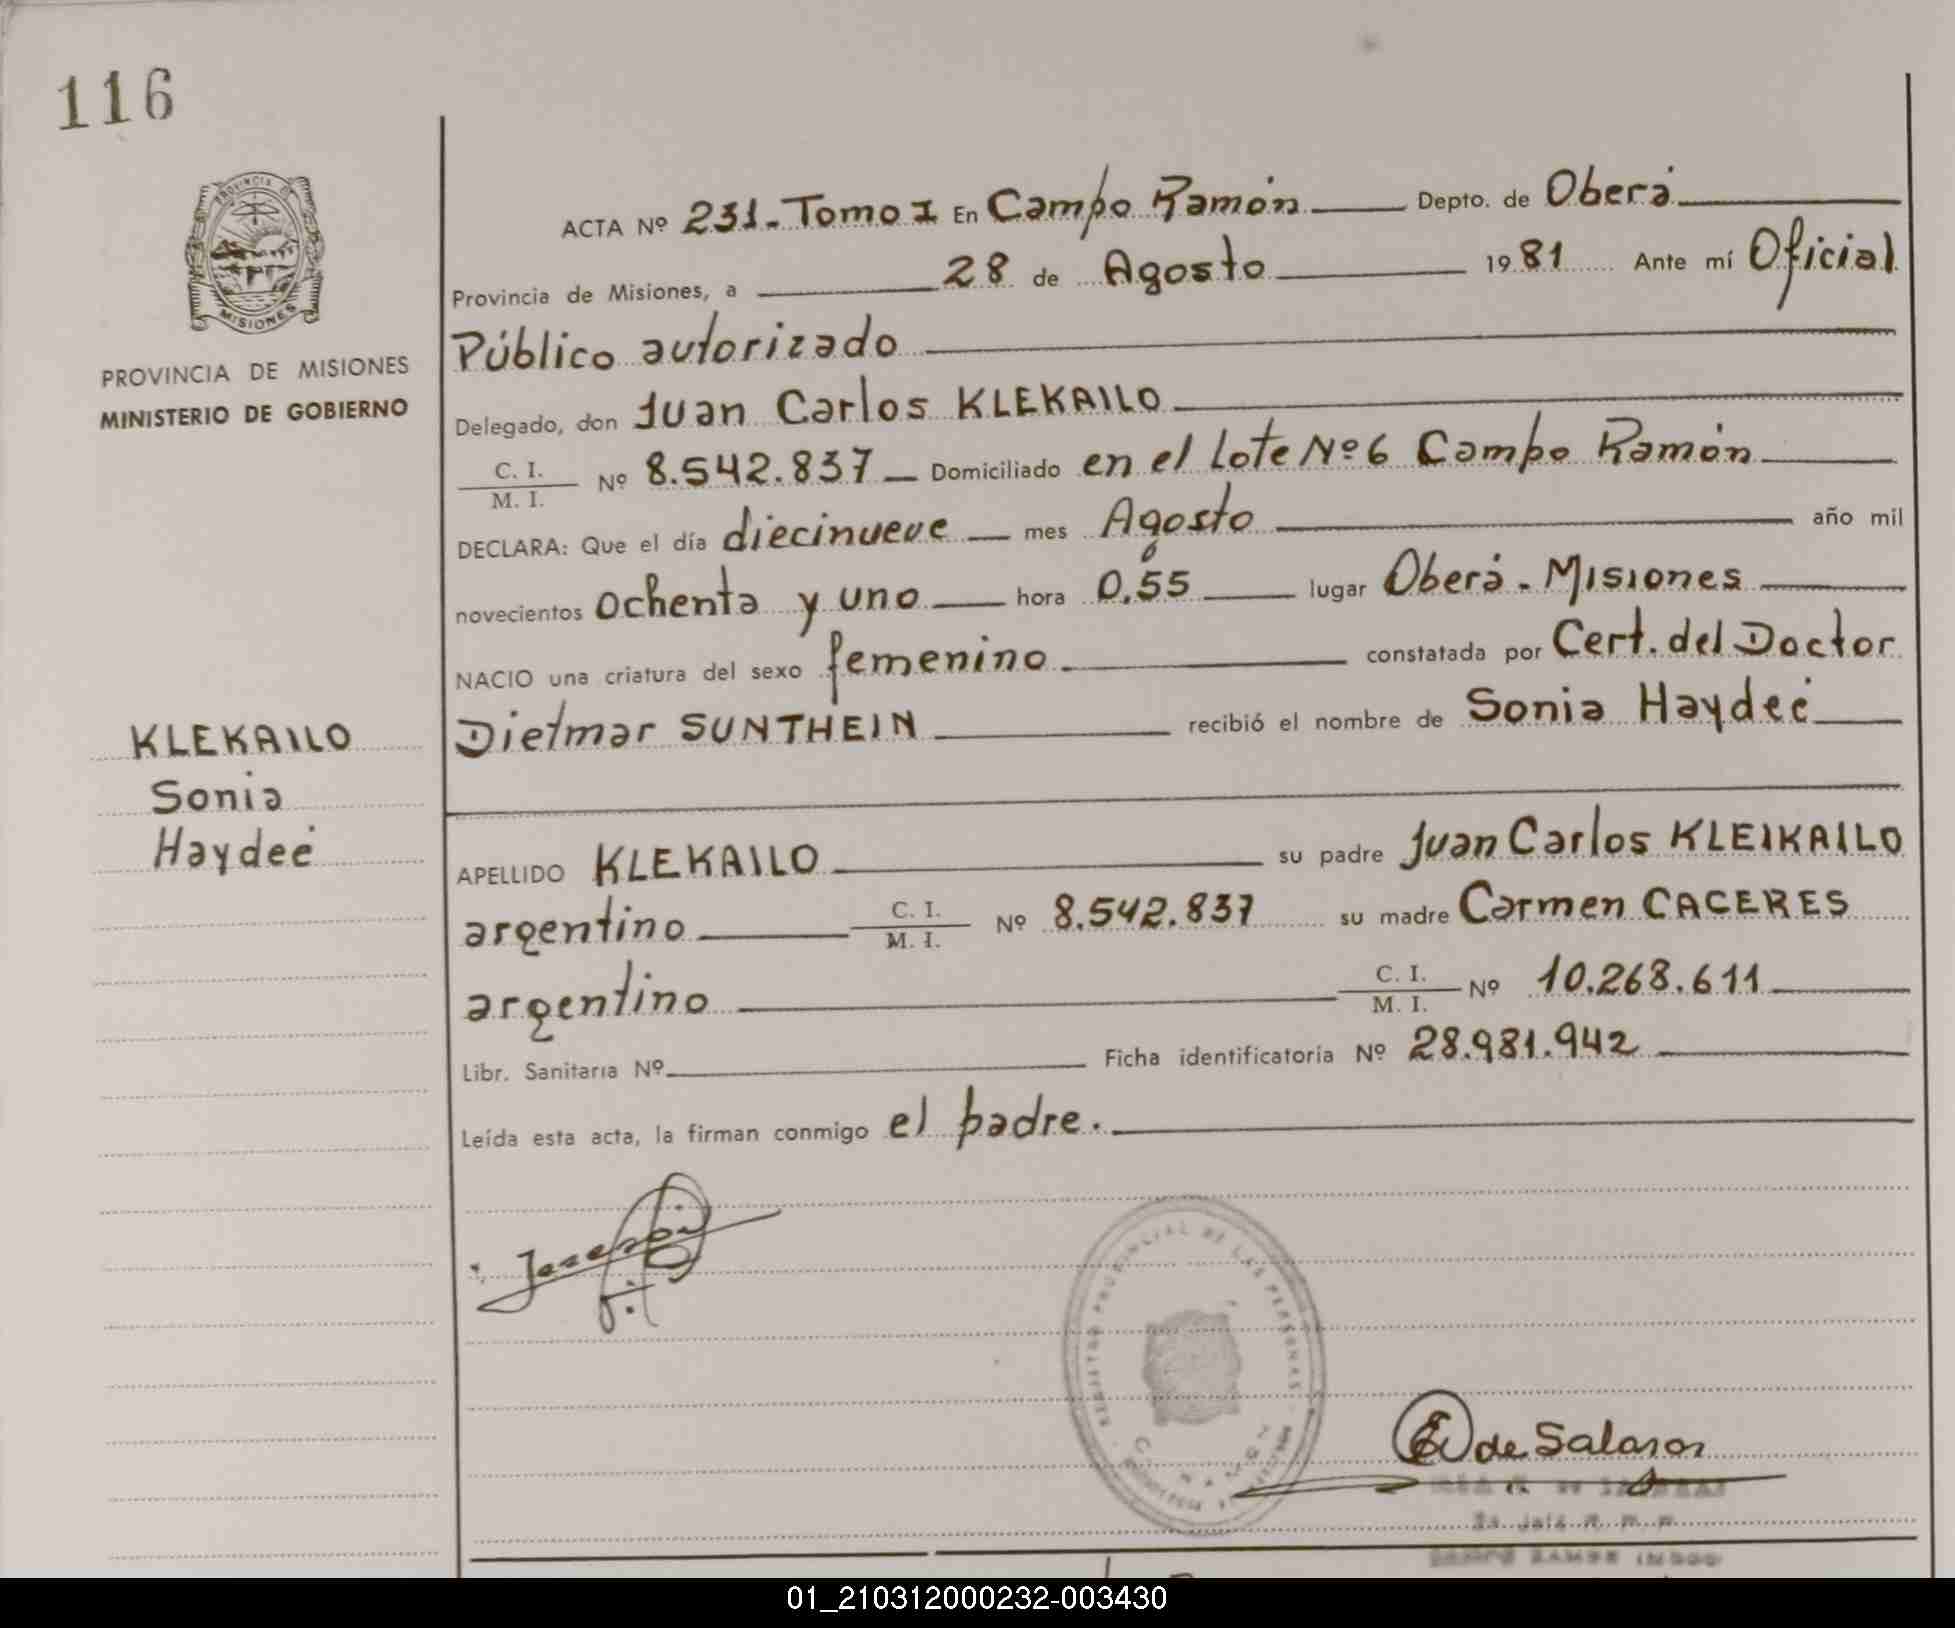 116
PROVINCIA DE
MISIONES
PROVINCIA DE MISIONES
MINISTERIO DE GOBIERNO
ACTA Nº 231-Tomo I En Campo Ramón Depto. de Oberá
Provincia de Misiones, a 28 de Agosto 1981 Ante mí Oficial
Público autorizado
Delegado, don Juan Carlos KLEKAILO
C. I.
M. I. Nº 8.542.837 Domiciliado en el Lote Nº 6 Campo Ramón
DECLARA: Que el día diecinueve mes Agosto año mil
novecientos ochenta y uno hora 0,55 lugar Oberá - Misiones
NACIO una criatura del sexo femenino constatada por Cert. del Doctor
Dietmar SUNTHEIN recibió el nombre de Sonia Haydeé
KLEKAILO
Sonia
Haydeé
APELLIDO KLEKAILO su padre Juan Carlos KLEIKAILO
argentino C. I.
M. I. Nº 8.542.837 su madre Carmen CACERES
argentino C. I.
M. I. Nº 10.268.611
Libr. Sanitaria Nº Ficha identificatoria Nº 28.981.942
Leída esta acta, la firman conmigo el padre.
REGISTRO PROVINCIAL DE LAS PERSONAS
de Salazar
01_210312000232-003430